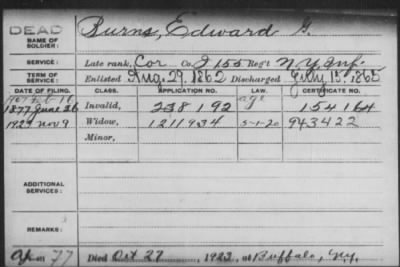 DEAD
NAME OF SOLDIER: Burns, Edward G.
SERVICE: Late rank, Cor Co. I 155 Reg't N.Y. Inf.
TERM OF SERVICE: Enlisted Aug. 29, 1862 Discharged July 15, 1865
DATE OF FILING. CLASS. APPLICATION NO. LAW. CERTIFICATE NO.
1877 June 26 Invalid, 238192 age 154164
1922 Nov 9 Widow, 1211934 5-1-20 943422
Minor,
ADDITIONAL SERVICES:
REMARKS:
77 Died Oct 27, 1922, at Buffalo, N.Y.